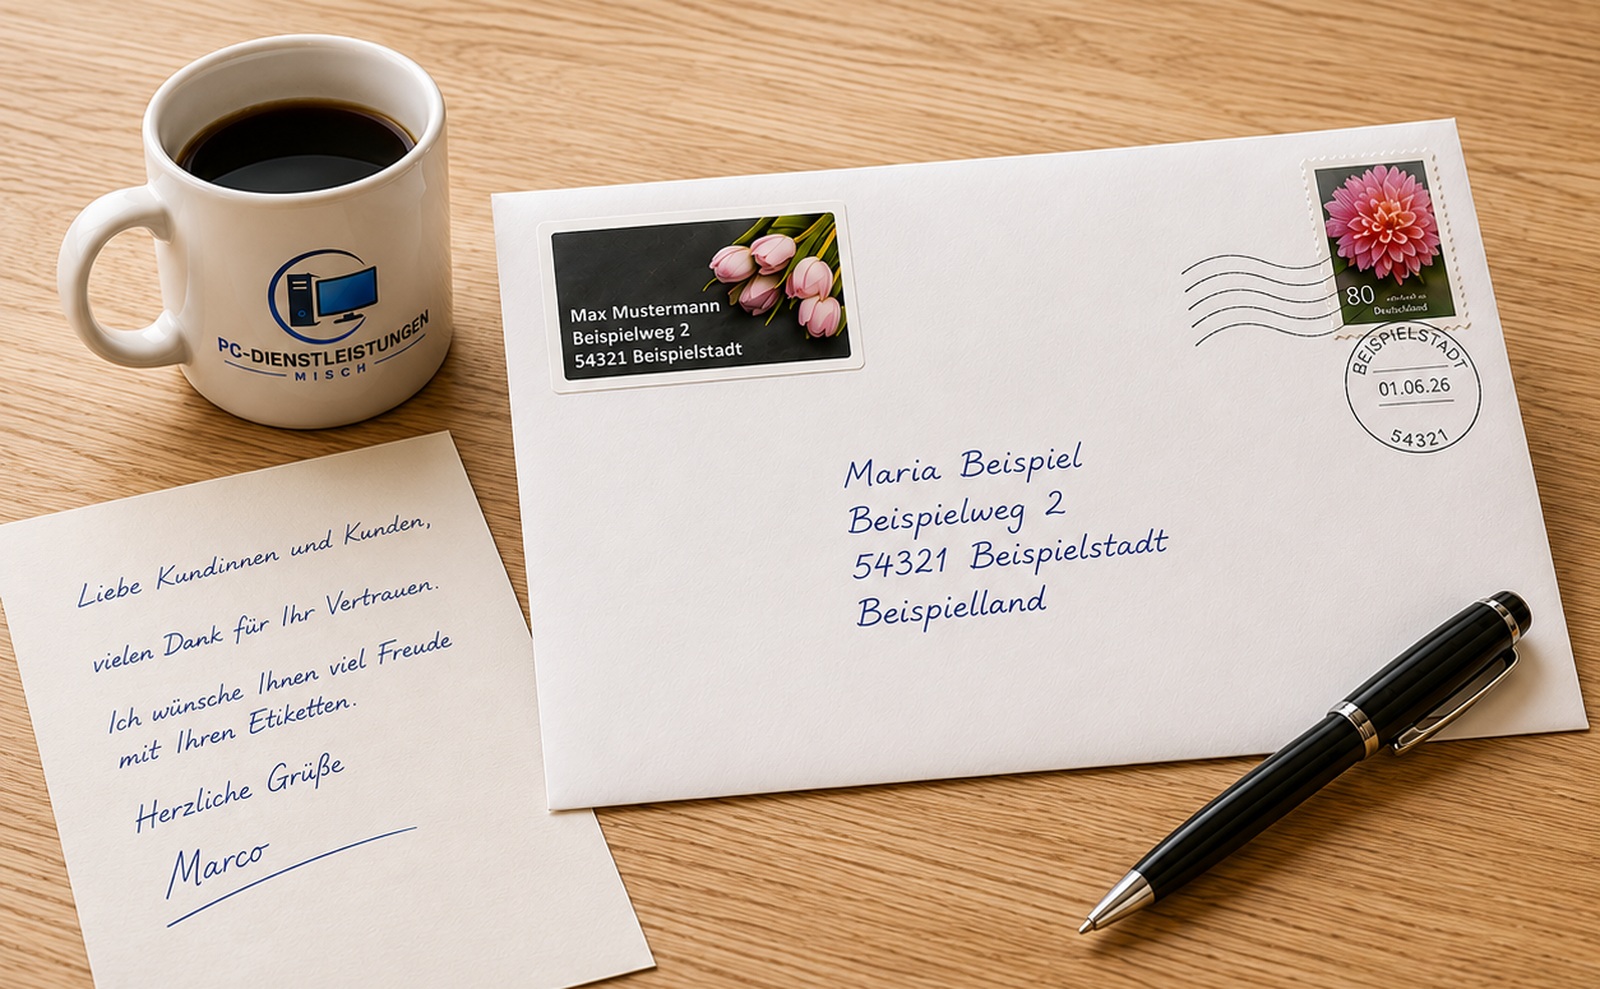 PC-DIENSTLEISTUNGEN
MISCH
Liebe Kundinnen und Kunden,
vielen Dank für Ihr Vertrauen.
Ich wünsche Ihnen viel Freude
mit Ihren Etiketten.
Herzliche Grüße
Marco
Max Mustermann
Beispielweg 2
54321 Beispielstadt
80
Deutschland
BEISPIELSTADT
01.06.26
54321
Maria Beispiel
Beispielweg 2
54321 Beispielstadt
Beispielland